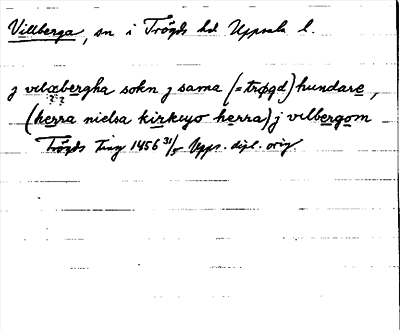 Villberga, sn i Trögds hd Uppsala l.
j vilæbergha sokn j sama (=trøgd) hundare,
? ?
(herra nielsa kirkiyo herra) j vilbergom
Trögds Ting 1456 31/5 Upps. dipl. orig.